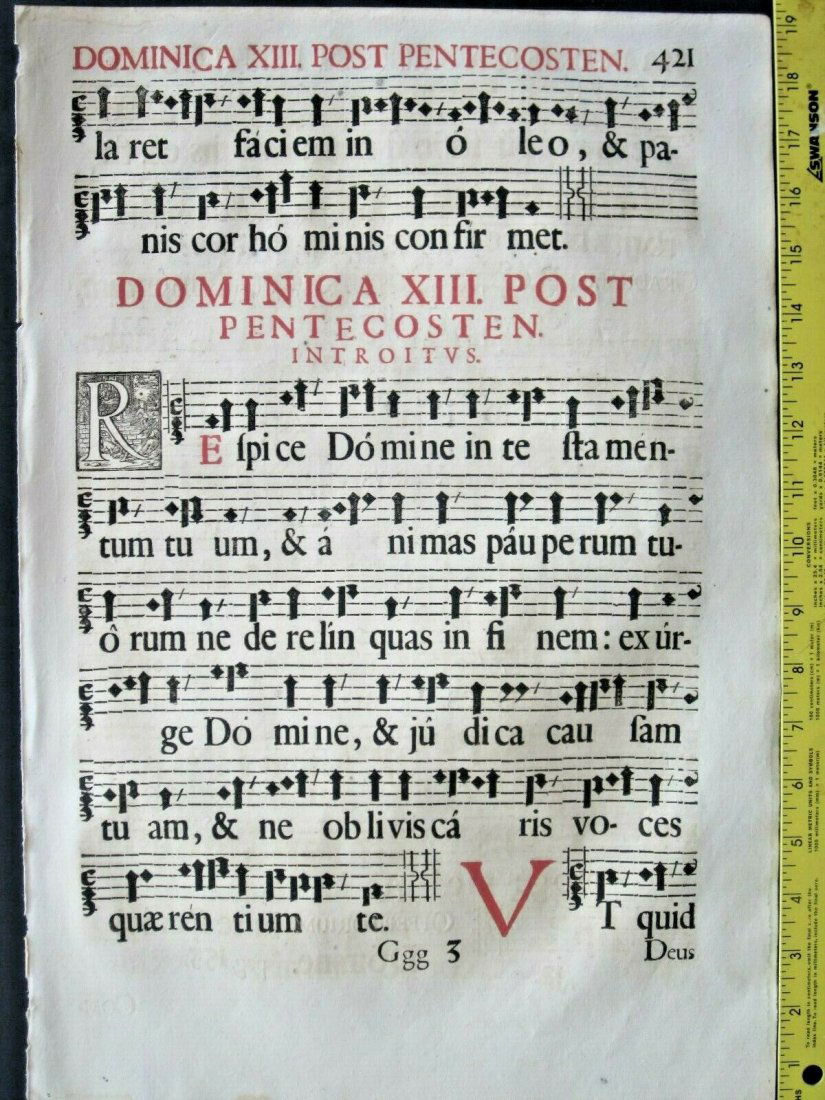 DOMINICA XIII. POST PENTECOSTEN. 421
la ret fáciem in ó le o, & pa-
nis cor hó minis con fir met.
DOMINICA XIII. POST
PENTECOSTEN.
INTROITVS.
RE ſpi ce Dó mi ne in te ſta men-
tum tu um, & á ni mas páu pe rum tu-
ô rum ne de re lín quas in fi nem: ex úr-
ge Dó mi ne, & jú di ca cau ſam
tu am, & ne ob li vis cá ris vo- ces
quæ rén ti um te. VT quid
Ggg 3 Deus
SWANSON
19
18
17
16
15
14
13
12
11
10
9
8
7
6
5
4
3
2
1
CONVERSIONS
LINEAR METRIC UNITS AND SYMBOLS